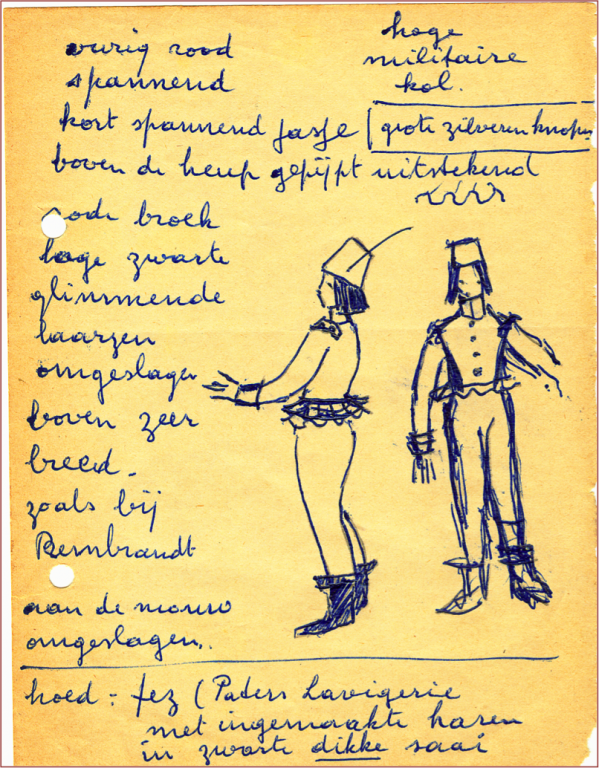 vurig rood
spannend
hoge
militaire
kol.
kort spannend jasje
grote zilveren knopen
boven de heup gepijpt uitstekend
rode broek
lage zwarte
glimmende
laarzen
omgeslagen
boven zeer
breed -
zoals bij
Rembrandt
aan de mouw
omgeslagen..
hoed = fez (Paters Lavigerie
met ingemaakte haren
in zwarte dikke saai